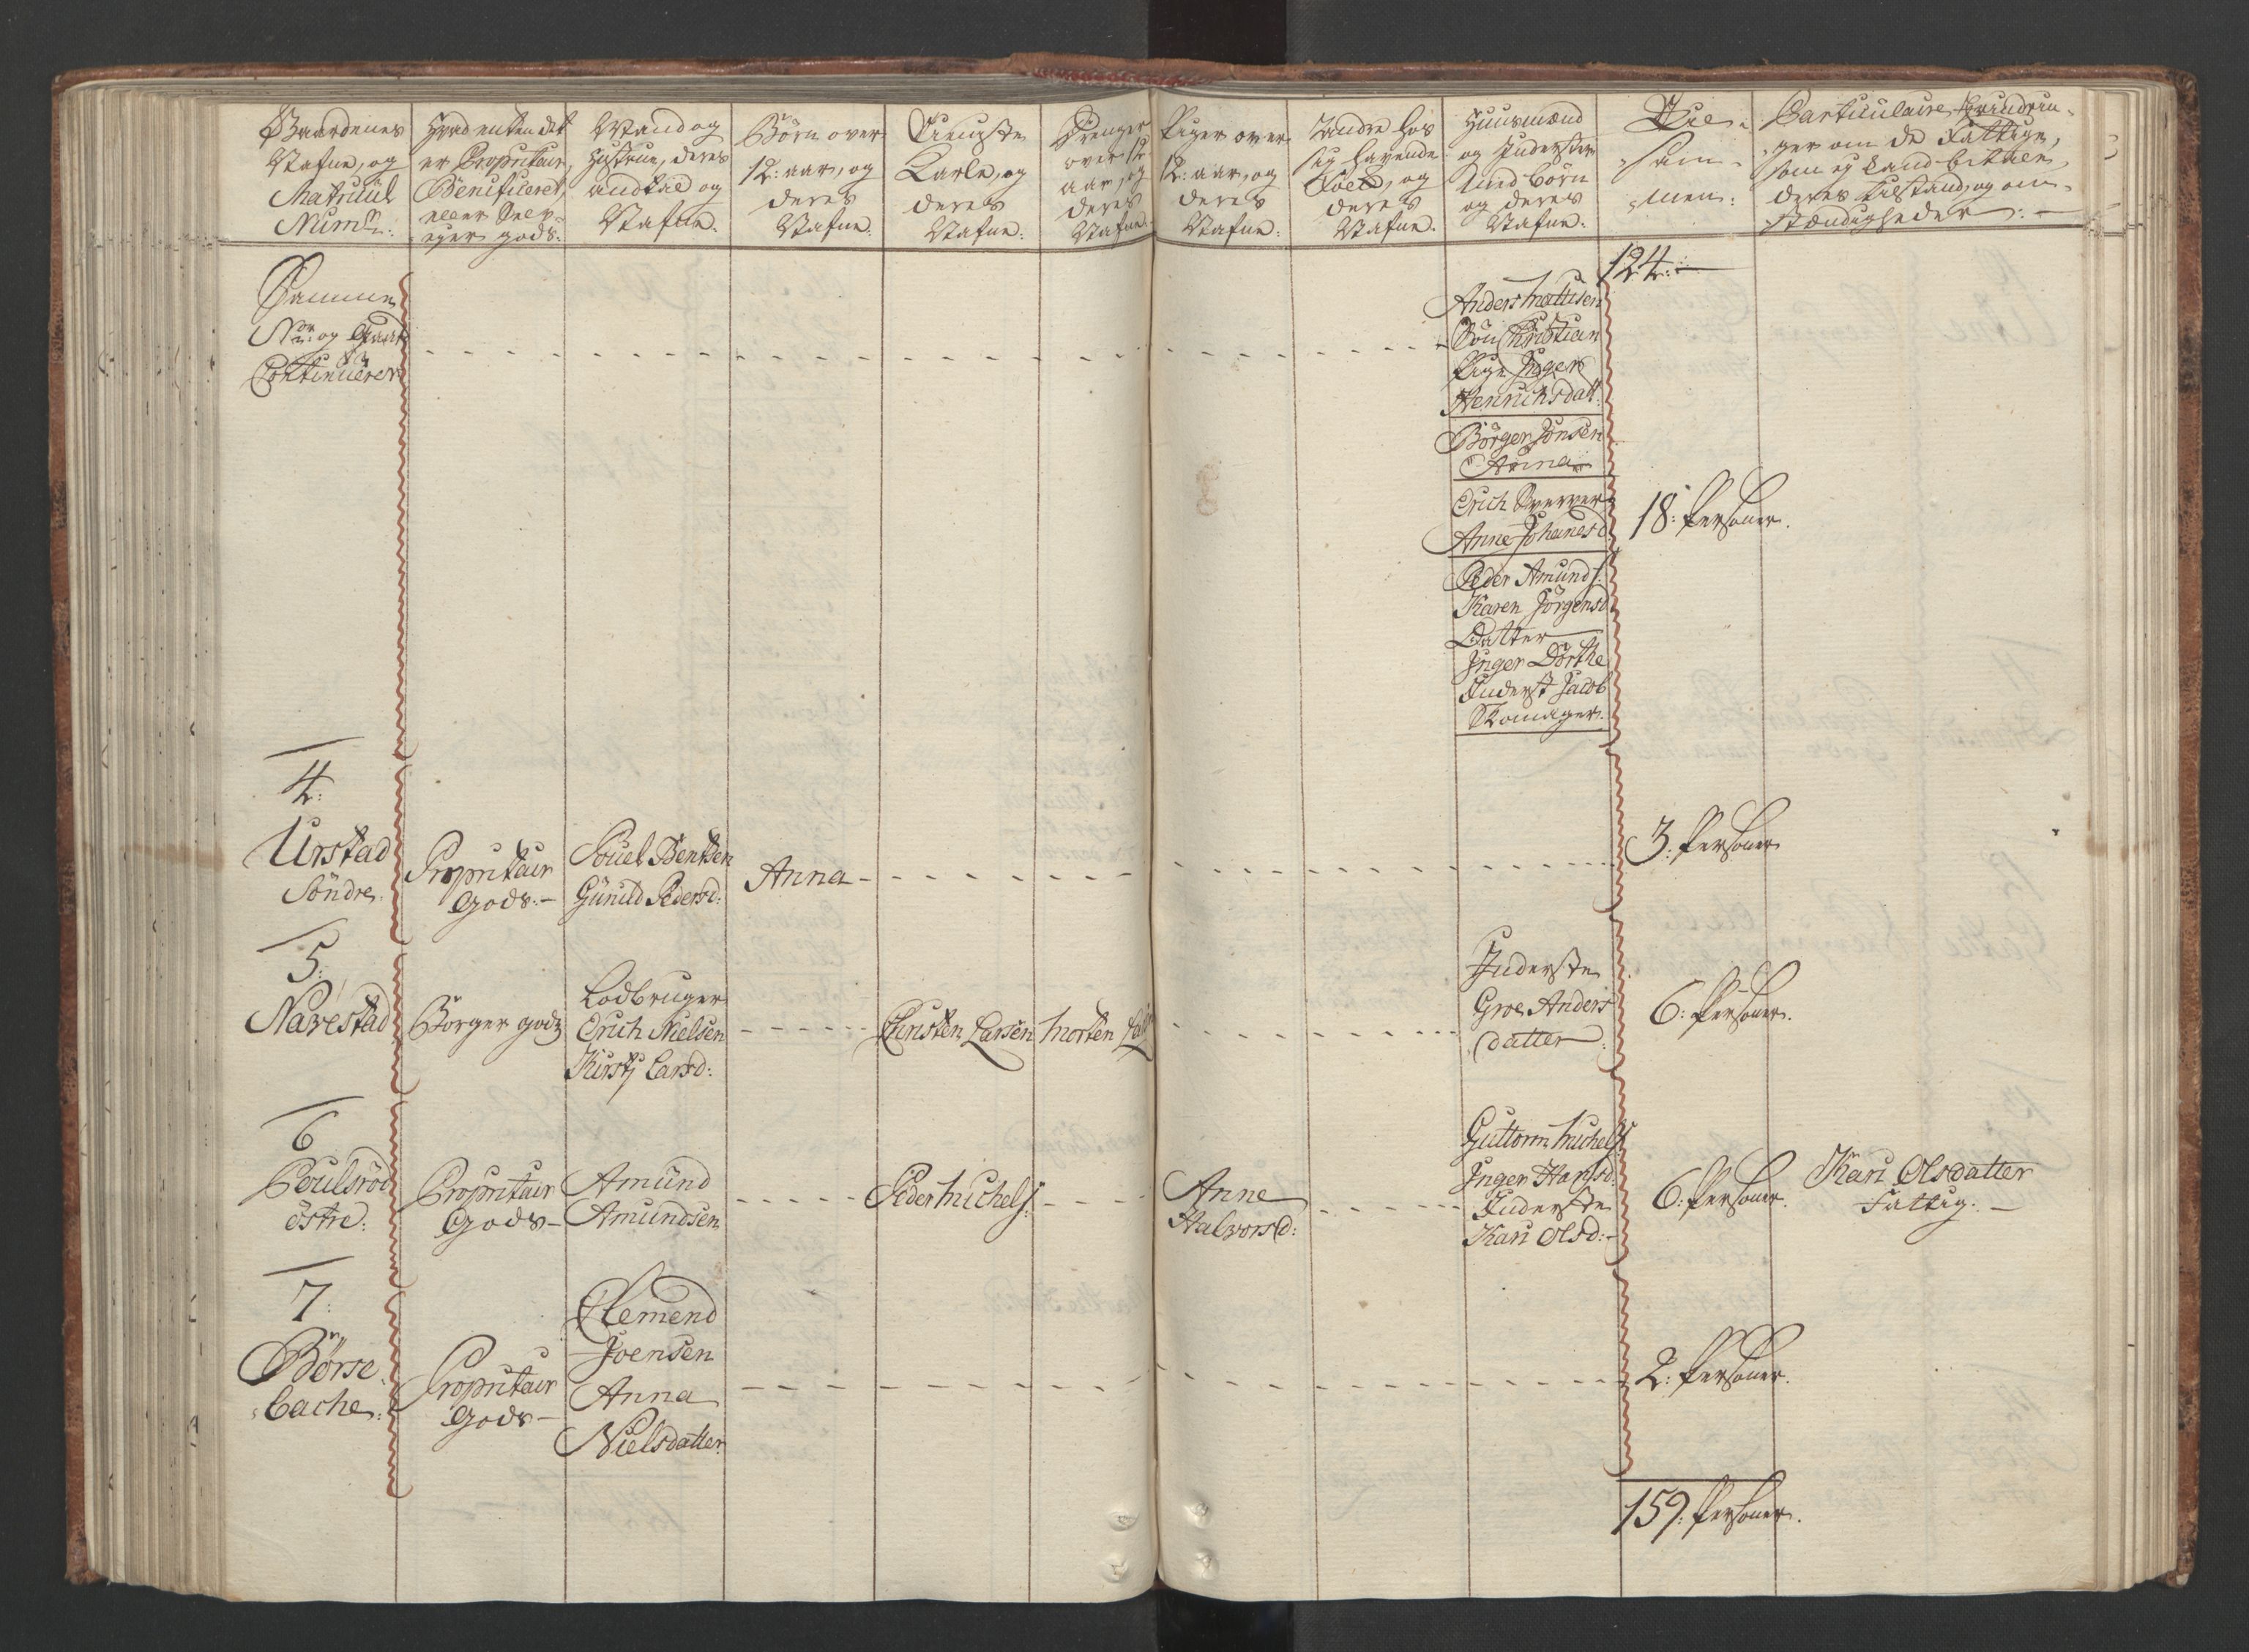 Gaardenes
Nafne, og
Matricul
Num:
Hvad enten det
er Proprietair,
Beneficeret,
eller Selv-
eyer gods.
Mand og
Hustrue, deres
andtal og
Nafne.
Børn over
12: aar, og
deres
Nafne:
Tieniste
Karle, og
deres
Nafne:
Drenger
over 12
aar, og
deres
Nafne:
Piger over
12: aar, og
deres
Nafne:
Jandre hos
sig havende
Folck, og
deres
Nafne.
Huusmænd
og Inderster
med børn
og deres
Nafne:
Til-
sam-
men:
Particulaire Erindrin-
ger om de Fattige,
som ej kand betale,
deres tilstand, og om-
stændigheder: —
Samme
No og Gaard
Continuerer
124: —
Anders Mattisen
Søn Christian
Pige Inger
Henrichsdatt:
Börger Jonsen
Anna
Erich
Anne Johanesd
18: Personer.
Peder Amunds:
Karen Jörgensd
Datter
Inger Dorthe
Inderst Jacob
Skomager.
4:
Urstad
Söndre.
Proprietair
Gods: —
Pouel Bentsen
Gunild Pedersd:
Anna
3: Personer
5:
Navestad
Börger gods
Lodbruger
Erich Nielsen
Kirstj Larsd:
Christen Larsen
Morten
Inderste
Groe Anders
datter.
6: Personer.
6
Poulsröd
östre:
Proprietair
Gods —
Amund
Amundsen
Peder Michels:
Anne
Halvorsd:
Guttorm Michels:
Inger Hansd:
Inderste
Kari Olsd: —
6: Personer.
Kari Olsdatter
Fattig. —
7:
Börse
bache:
Proprietair
Gods —
Clemend
Joensen
Anna
Nielsdatter
2: Personer.
159: Personer.